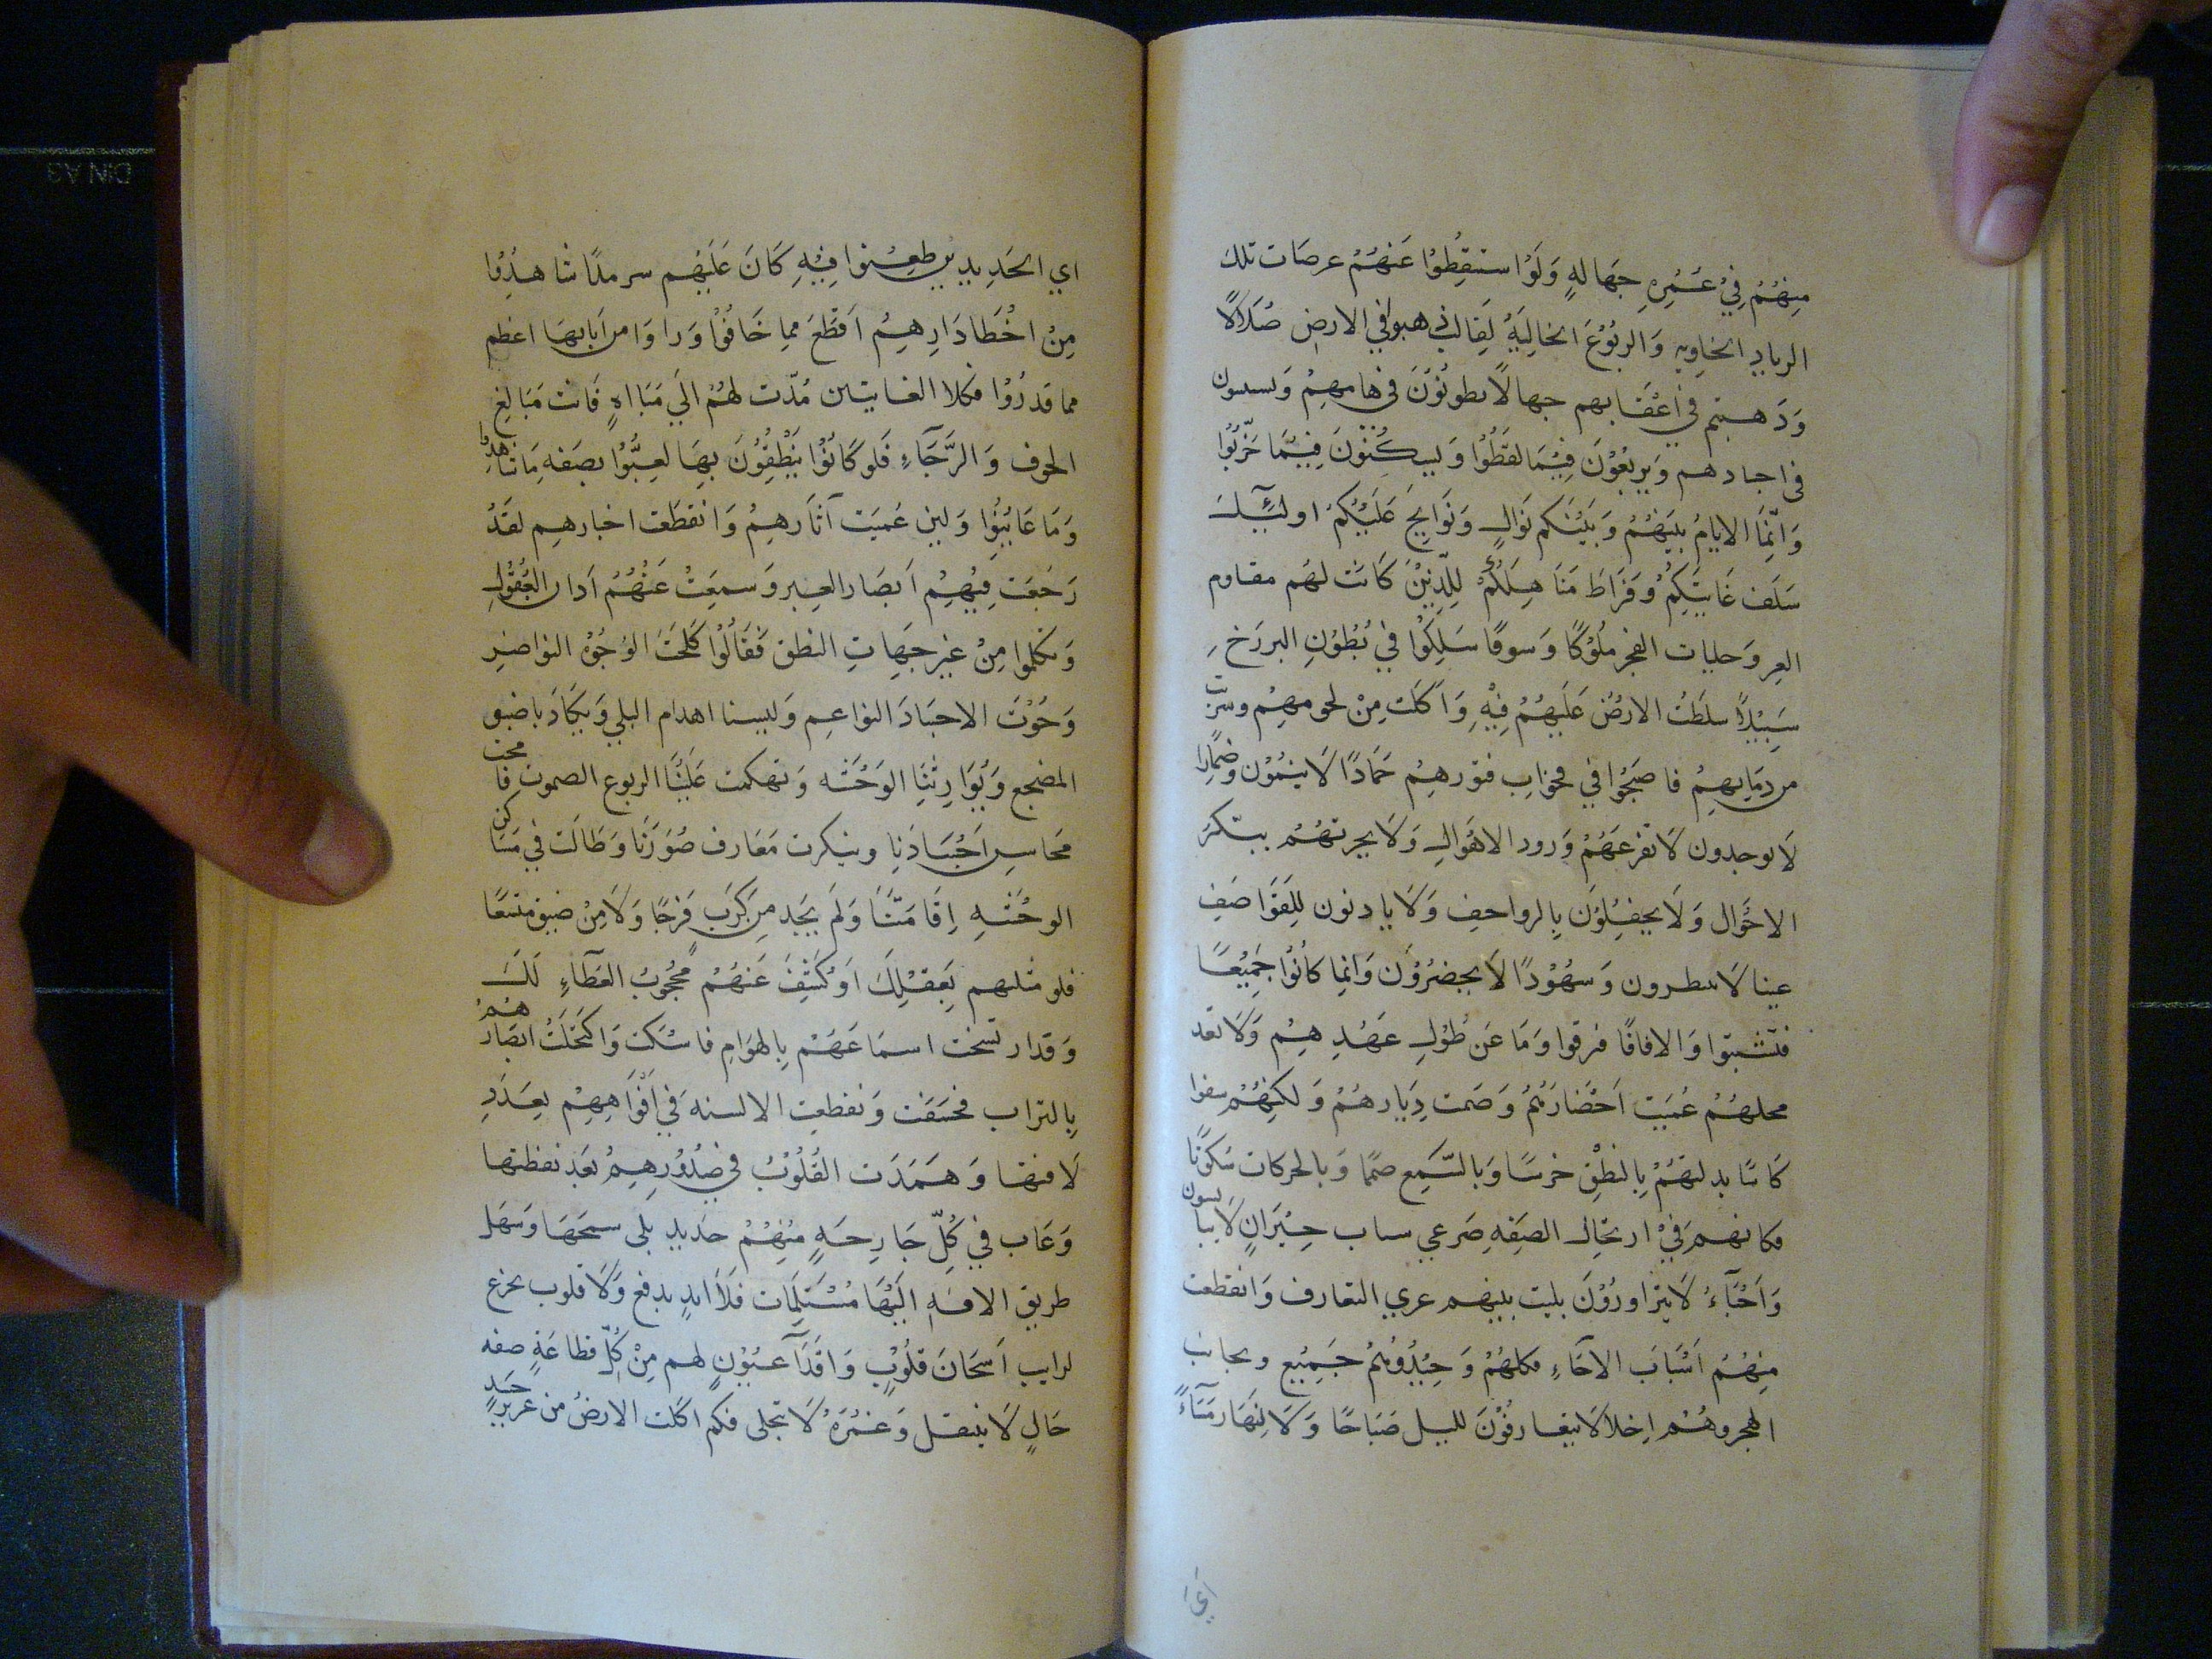 منهُمْ فِيْ غَمْرِهِ جِهَالهٍ وَلَوْ استنقِطُوْا عَنهُمْ عرصَات تلك
الرياد الخاويه وَالربُوْعَ الخالِيَهُ لَقَالت ذهبوا في الارض ضُلاّلًا
وَذهبتم في اعْقَابهم جهالًا تطوئوْنَ في هامهمْ
في اجسادهم وَيرتعُوْنَ فِيْمَا لفَظُوْا وَيسكنُوْنَ فِيْمَا خَرّبُوْا
وَانّمَا الايامُ بينَهُمْ وَبَيْنَكم نوَاكٍ وَنَوَايحُ عَلَيْكُمْ اولَئِكَ
سَلَف غَايتكُمْ وَفرَاطَ مَنَاهِلكُمْ للِّذيْنَ كَانَتْ لهُم مقاوم
العز وَحلبات الفخر مُلُوْكًا وَسوقًا سَلكُوْا فيْ بُطُوْنِ البرزَخ
سَبِيْلًا سلطَتُ الارضُ عَلَيهُمْ فِيْهِ وَاَكَلت مِنْ لحومهِمْ وشَربَت
من دمَايهمْ فاصبَحُوْا في فجوَاتِ قبورهِمْ جَمَادًا لَا ينمُوْن وضمَارا
لَا يوجدون لَا تفزعَهُمْ وَرود الاهْوَالِ وَلَا يحزنهُمْ بتنكر
الاحْوَال وَلَا يحفلُوْنَ بِالرواجف وَلَا ياذنون للِقَوَاصِفِ
غيبا لَا ينتظرون وَشهُوْدًا لَا يحضرُوْنَ وَانما كانُوْا جَمِيْعًا
فتشتتوا وَالافاقًا فرقوا وَمَا عَن طُوْلِ عَهْدِهِمْ وَلَا بعد
محلهُمْ عُميَت اَخبَارهُمْ وَصَمت دِيَارهُمْ وَلكنهُمْ سقوا
كَاسًا بدلتهُمْ بِالنطْقِ خرسًا وَبالسّمِع صممًا وَبالحركات سُكوْنًا
فكانهم فيْ ارتجال الصفِهِ صَرعى سبات جِيْرَانٍ لَا يتانسون
وَاَحْبَآءُ لَا يتزاورُوْنَ بليت بينهم عري التعارف وَانقطعت
مِنهُمْ اَسْبَاب الاخَآءِ فكلهُمْ وَحِيْدٌ وَهُمْ جَمِيْع وبجانب
الهجر وهُمْ اخلا لَا يتعارفُوْنَ لليل صَبَاحًا وَلَا لِنهَار مَسَآءً
اَيَ
اي الجَدِيدين ظعنوا فِيْهِ كَانَ عَلَيْهم سرمدًا شاهدُوْا
مِنْ اخْطَار دَارِهمُ اَفظَعَ مما خَافُوْا وَراوَا من اياتهَا اعظم
مما قدرُوْا فكلا الغايتين مُدّت لهُمْ الَي مَبَااهٍ فَاتت مَبَالِغ
الخوف وَالرَّجَآءِ فَلو كَانُوْا يَنْطِقُوْنَ بهَا لعيُّوْا بصفه مَا شاهدُوا
وَمَا عَاينُوْا وَلين عَميَت آثَارهِمْ وَانقطعَت اخبارهم لقَدُ
رَجَعَت فِيْهمْ اَبصَار العبر وَسمعَتْ عَنْهُمْ اَذان العُقُوْلِ
وَتكلموا مِنْ غير جهَاتِ النطق فَقَالُوْا كَلحَتْ الوُجُوْهُ النواضر
وَخوْتَ الاجسَادَ النواعم وَلبسنا اهدام البلي وَتكَادَنا ضيق
المضجع وَتوَارثنَا الوَحْشَه وَتهكمت عَلَيْنَا الربوع الصموت فانمحت
محَاسن اَجْسَادنا وتنكرت مَعَارف صُوَرنَا وَطَالت في مسَاكن
الوحْشَه اِقَامَتنَا وَلَم نَجد من كربٍ فرَجًا وَلَا مِنْ ضيق متسَعًا
فلو مثلتهم بعَقلكَ اَوْ كُشِفَ عَنهُمْ مَحْجُوْبُ الغطَآءِ لَكَ
وَقد ارتسَخت اسمَاعَهُمْ بِالهوَام فاستكت وَاكتحلتُ ابصَارهُمْ
بِالتراب فخسَفَت وَتقطعت الالسنه في اَفوَاههِمْ بعدَ
ذلَاقتها وَهَمَدَت القُلُوْبُ في صدُوْرهمْ بعَد يقظتها
وَعَاث في كُلّ جَارِحَهٍ منهُمْ جدِيد بلى سمجَهَا وَسَهل
طريق الافه الَيْهَا مُستسلمَات فَلَا ايدٍ بدفع وَلَا قلوب بجزع
لرايت اَشجَانَ قلُوْبٍ وَاقذَآ عيُوْنٍ لهم مِنْ كُلّ فظاعَهٍ صفه
حَالٍ لَا ينتقل وَغمُرَهُ لَا تجلى فكم اكلت الارضُ من عزيزِ جَسدٍ